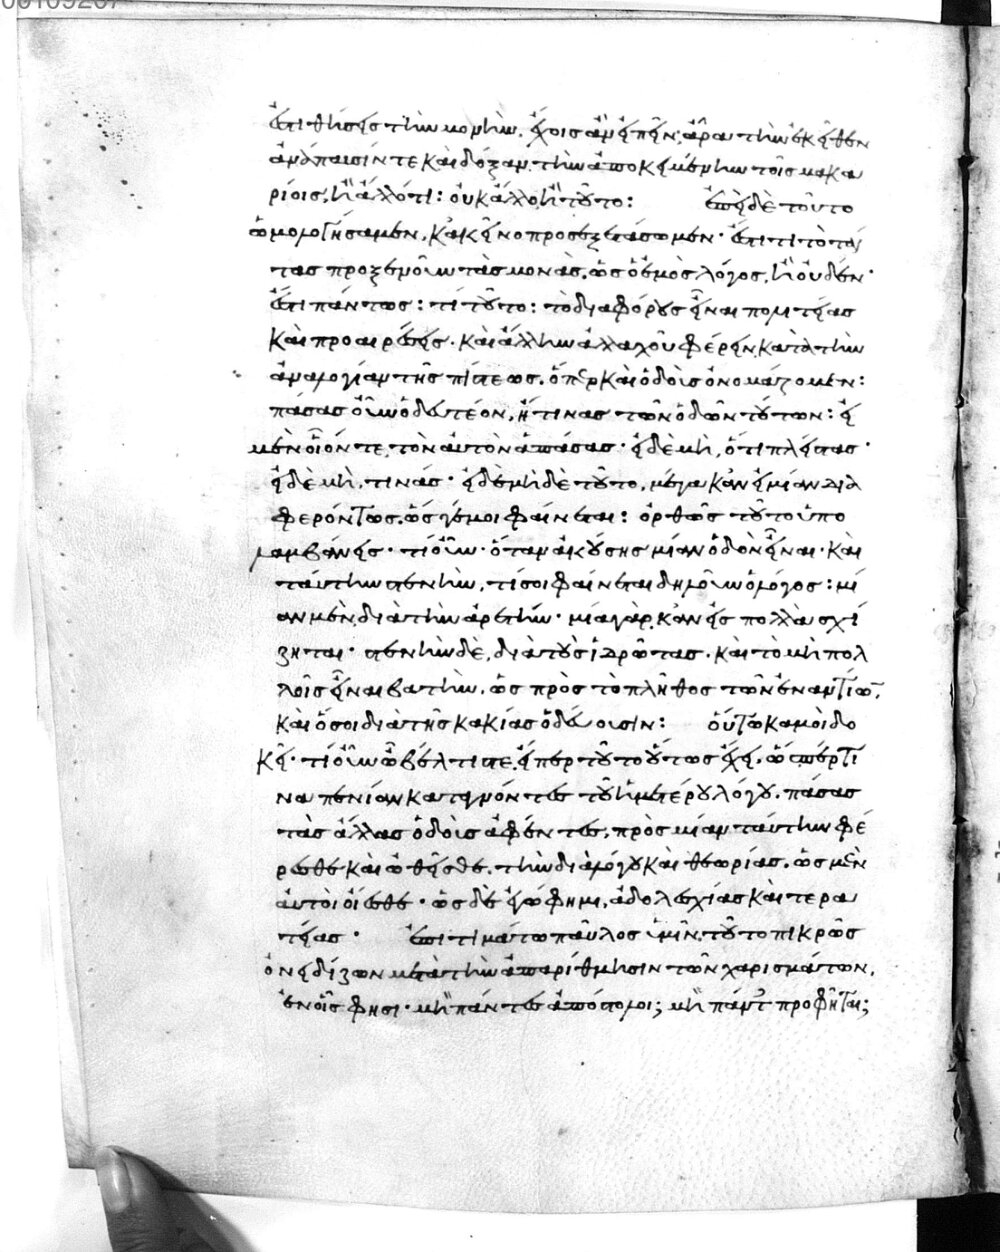 ἐπιθήσεις τὴν μονὴν. ἔχοις ἂν εἰπεῖν; ἆρα τὴν ἐκεῖθεν
ἀνάπαυσίν τε καὶ δόξαν τὴν ἀποκειμένην τοῖς μακα
ρίοις, ἢ ἄλλό τι: οὐκ ἄλλο ἢ τοῦτο: ἐπεὶ δὲ τοῦτο
ὡμολογήσαμεν, κἀκεῖνο προσεξετάσωμεν· ἔστι τι τὸ ταύ
τας προξενοῦν τὰς μονὰς, ὡς ὁ ἐμὸς λόγος, ἢ οὐδέν·
ἔστι πάντως: τί τοῦτο: τὸ διαφόρους εἶναι πολιτείας
καὶ προαιρέσεις· καὶ ἄλλην ἀλλαχοῦ φέρειν κατὰ τὴν
ἀναλογίαν τῆς πίστεως. ὅπερ καὶ ὁδοὺς ὀνομάζομεν:
πάσας οὖν ὁδευτέον, ἤ τινας τῶν ὁδῶν τούτων: εἰ
μὲν οἷόν τε, τὸν αὐτὸν ἁπάσας· εἰ δὲ μὴ, ὅτι πλείστας·
εἰ δὲ μὴ, τινάς· εἰ δὲ μὴ δὲ τοῦτο, μέγα κἂν εἰ μίαν δια
φερόντως. ὥς γέ μοι φαίνεται: ὀρθῶς τοῦτο ὑπο
λαμβάνεις· τί οὖν· ὅταν ἀκούσῃς μίαν ὁδὸν εἶναι· καὶ
ταύτην στενὴν, τί σοι φαίνεται δηλοῦν ὁ λόγος: μί
αν μὲν, διὰ τὴν ἀρετήν· μία γὰρ, κἂν εἰς πολλὰ σχί
ζηται· στενὴν δὲ, διὰ τοὺς ἱδρῶτας. καὶ τὸ μὴ πολ
λοῖς εἶναι βατὴν. ὡς πρὸς τὸ πλῆθος τῶν ἐναντίων,
καὶ ὅσοι διὰ τῆς κακίας ὁδεύουσιν: οὕτω κἀμοὶ δο
κεῖ· τί οὖν ὦ βέλτιστε, εἴπερ τοῦτο οὕτως ἔχει. ὥσπέρ τι
να πενίαν καταγνόντες τοῦ ἡμετέρου λόγου. πάσας
τὰς ἄλλας ὁδοὺς ἀφέντες, πρὸς μίαν ταύτην φέ
ρεσθε καὶ ὠθεῖσθε. τὴν διὰ λόγου καὶ θεωρίας. ὡς μὲν
αὐτοὶ οἴεσθε· ὡς δὲ ἐγώ φημι, ἀδολεσχίας καὶ τερα
τείας· ἐπιτιμάτω παῦλος ὑμῖν. τοῦτο πικρῶς
ὀνειδίζων μετὰ τὴν ἀπαρίθμησιν τῶν χαρισμάτων,
ἐν οἷς φησι· μὴ πάντες ἀπόστολοι; μὴ πάντες προφῆται;